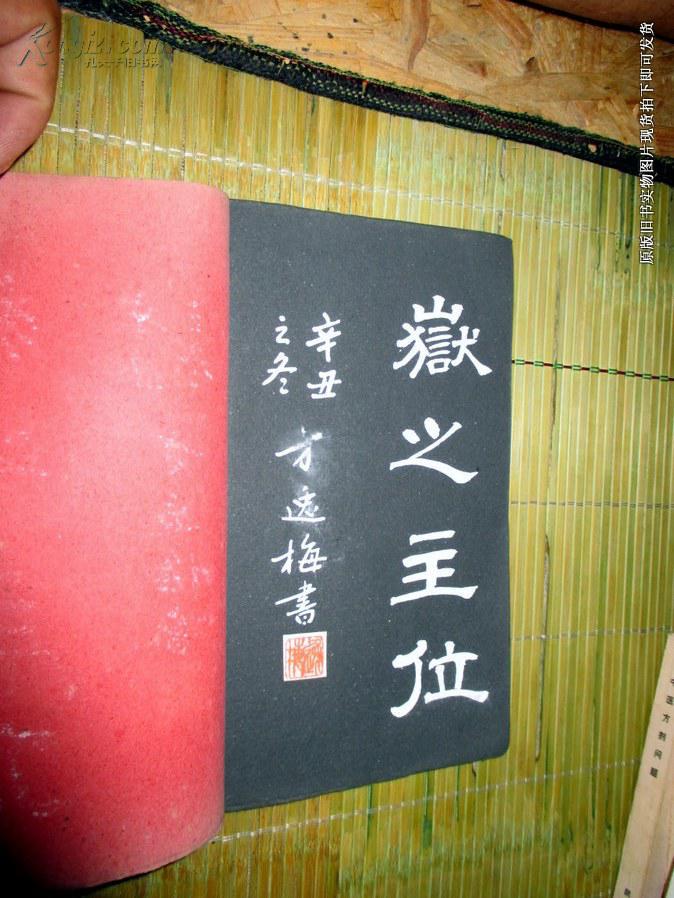 嶽之主位
辛丑
之冬
方逸梅書
Kongfz.com
孔夫子旧书网
原版旧书实物图片现货拍下即可发货
中医方剂问题